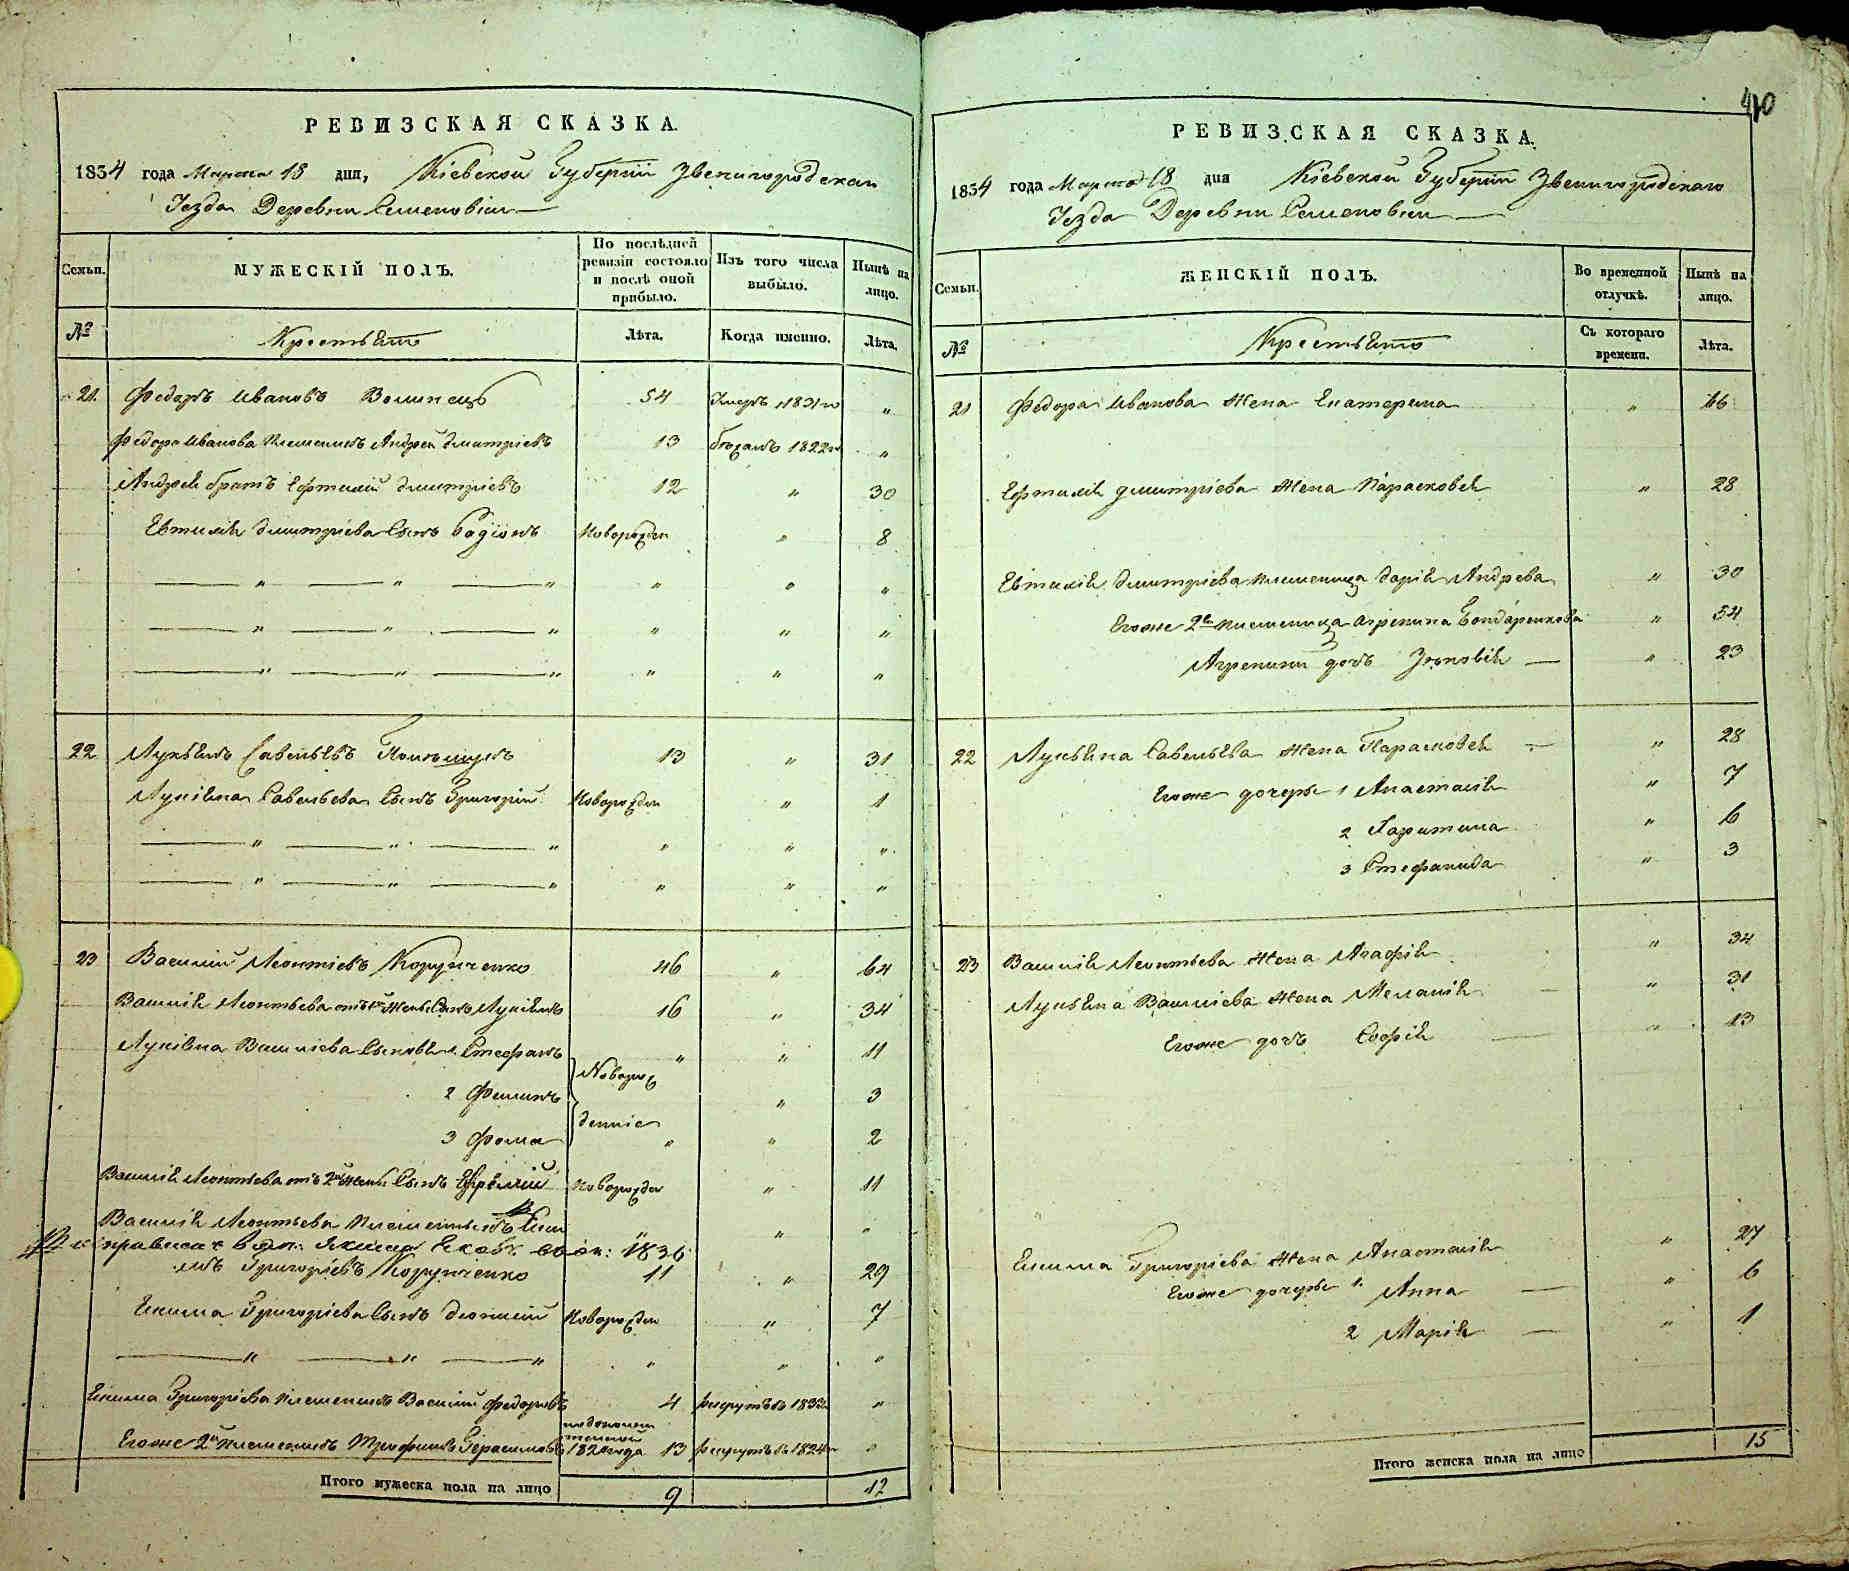 РЕВИЗСКАЯ СКАЗКА.
1834 года Марта 18 дня, Кіевской Губерніи Звенигородскаго
Уезда Деревни Семеновки
Семьи. МУЖЕСКІЙ ПОЛЪ. По послѣдней ревизіи состояло и послѣ оной прибыло. Изъ того числа выбыло. Нынѣ на лицо.
№ Крестьяне Лѣта. Когда именно. Лѣта.
21. Федоръ Ивановъ Волинецъ 54 Умеръ 1831го "
Федора Иванова племенникъ Андрей Дмитріевъ 13 бежалъ 1822го "
Андрея братъ Ефтихій Дмитріевъ 12 " 30
Евтихія Дмитріева сынъ Радіонъ новорожден " 8
" " " " " "
" " " " " "
" " " " " "
22 Лукьянъ Савельевъ 13 " 31
Лукіяна Савельева сынъ Григорій новорожден " 1
" " " " " "
" " " " " "
23 Василий Леонтіевъ Корунченко 46 " 64
Василія Леонтьева отъ 1й жены сынъ Лукіянъ 16 " 34
Лукіяна Василіева сыновья 1 Стефанъ " " 11
Новорож
2 Филипъ " 3
денніе
3 Фома " " 2
Василія Леонтьева отъ 2й жены сынъ новорожден " 11
Василія Леонтьева племенникъ Еки " " "
1836
мъ Григоріевъ Корунченко 11 " 29
Екима Григоріева сынъ Деонисій новорожден " 7
" " " " " "
Екима Григоріева племенникъ Василий Федоровъ 4 рекрутъ въ 1833 "
Егоже 2й племенникъ Трофимъ Герасимовъ 182 года 13 рекрутъ въ 1824 "
Итого мужеска пола на лицо 9 12
РЕВИЗСКАЯ СКАЗКА.
1834 года Марта 18 дня Кіевской Губерніи Звенигородскаго
Уезда Деревни Семеновки
Семьи. ЖЕНСКІЙ ПОЛЪ. Во временной отлучкѣ. Нынѣ на лицо.
№ Крестьяне Съ котораго времени. Лѣта.
21 Федора Иванова жена Екатерина "
Ефтихія Дмитріева жена Парасковея " 28
Евтихія Дмитріева племеница Дарія Андрева " 30
Егоже 2я племеница Агрепина Бондаренкова " 54
Агрепини дочь Зеновія " 23
22 Лукьяна Савельева жена Парасковея " 28
Егоже дочеры 1 Анастасія " 7
2 Харитина " 6
3 Стефанида " 3
23 Василія Леонтьева жена Агафія " 34
Лукьяна Василіева жена Меланія " 31
Егоже дочь Софія " 13
Екима Григоріева жена Анастасія " 27
Егоже дочеры 1. Анна " 6
2 Марія " 1
Итого женска пола на лицо 15